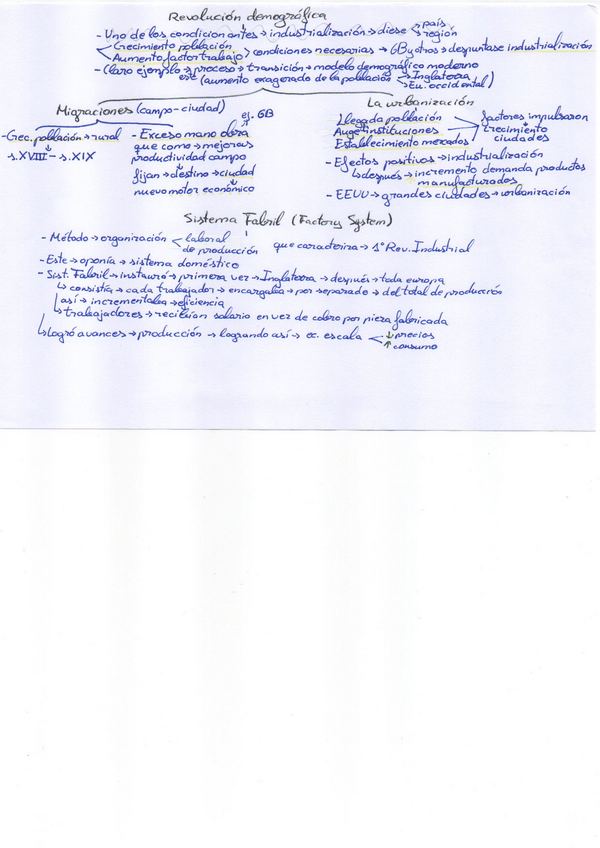 Revolución demográfica
- Uno de los condicionantes → industrialización → diese país
región
Crecimiento población
Aumento factor trabajo
condiciones necesarias → GB y otros → despuntase industrialización
- Claro ejemplo → proceso → transición → modelo demográfico moderno
(aumento exagerado de la población Inglaterra
Eu. occidental)
Migraciones (campo-ciudad)
- Crec. población → rural
s. XVIII - s. XIX
ej. GB
- Exceso mano obra
que como → mejoras
productividad campo
fijan → destino → ciudad
nuevo motor económico
La urbanización
Llegada población
Auge instituciones
Establecimiento mercados
factores impulsaron
crecimiento
ciudades
- Efectos positivos → industrialización
después → incremento demanda productos
manufacturados
- EEUU → grandes ciudades → urbanización
Sistema Fabril (Factory System)
- Método → organización laboral
de producción
que caracteriza → 1ª Rev. Industrial
- Este → oponía → sistema doméstico
- Sist. Fabril → instauró → primera vez → Inglaterra → después → toda europa
consistía → cada trabajador → encargaba → por separado → del total de producción
así → incrementaba → eficiencia
trabajadores → recibían salario en vez de cobro por pieza fabricada
Logró avances → producción → logrando así → ec. escala ↓ precios
↑ consumo